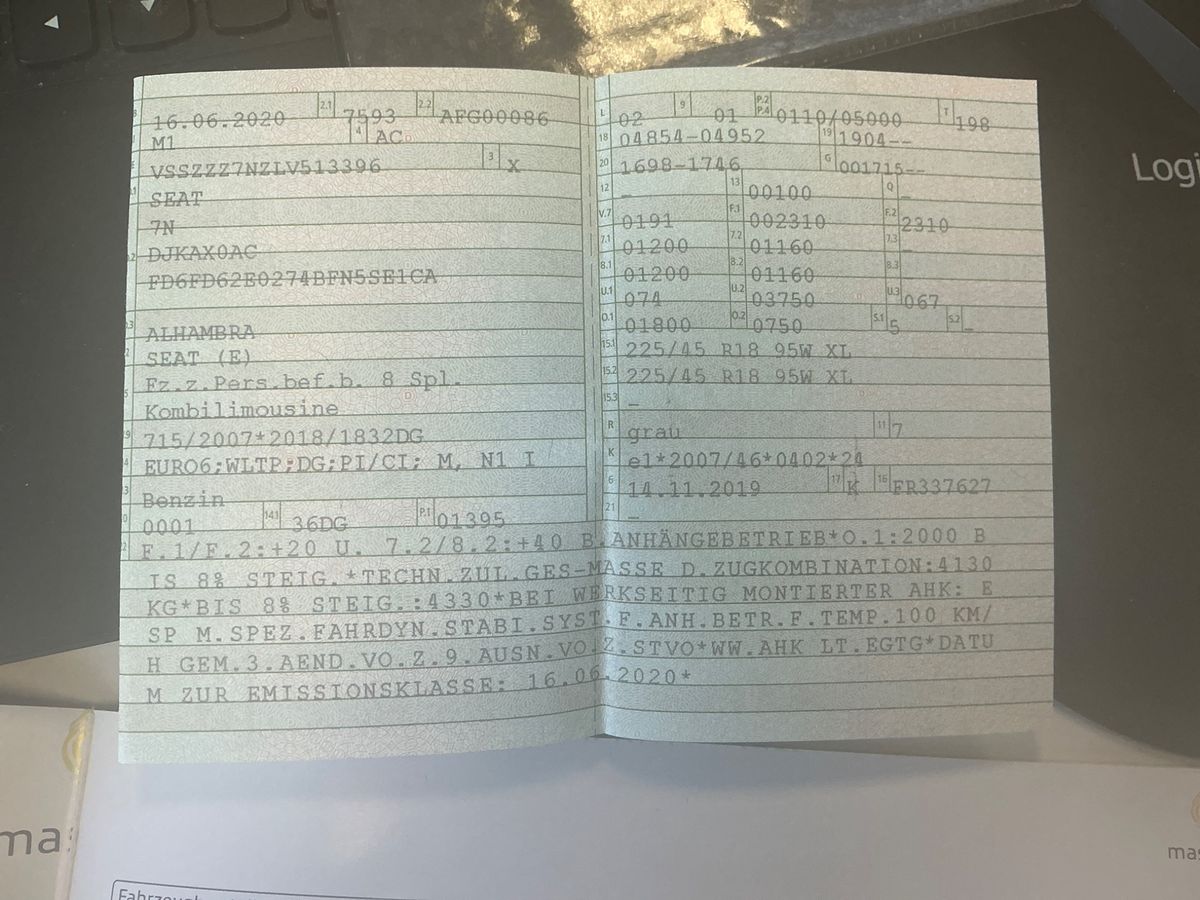 2.1 2.2
16.06.2020 7593 AFG00086
M1 4 AC
VSSZZZ7NZLV513396 3 X
SEAT
7N
DJKAX0AC
FD6FD62E0274BFN5SE1CA
ALHAMBRA
SEAT (E)
Fz.z.Pers.bef.b. 8 Spl.
Kombilimousine
715/2007*2018/1832DG
EURO6;WLTP;DG;PI/CI; M, N1 I
Benzin
0001 14.1 36DG P.1 01395
L 02 9 01 P.2 P.4 0110/05000 T 198
18 04854-04952 19 1904--
20 1698-1746 G 001715--
12 - 13 00100 Q -
V.7 0191 F.1 002310 F.2 2310
7.1 01200 7.2 01160 7.3
8.1 01200 8.2 01160 8.3
U.1 074 U.2 03750 U.3 067
O.1 01800 O.2 0750 S.1 5 S.2 -
15.1 225/45 R18 95W XL
15.2 225/45 R18 95W XL
15.3 -
R grau 11 7
K e1*2007/46*0402*24
6 14.11.2019 17 K 16 FR337627
21 -
F.1/F.2:+20 U. 7.2/8.2:+40 B.ANHÄNGEBETRIEB*O.1:2000 B
IS 8% STEIG.*TECHN.ZUL.GES-MASSE D.ZUGKOMBINATION:4130
KG*BIS 8% STEIG.:4330*BEI WERKSEITIG MONTIERTER AHK: E
SP M.SPEZ.FAHRDYN.STABI.SYST.F.ANH.BETR.F.TEMP.100 KM/
H GEM.3.AEND.VO.Z.9.AUSN.VO.Z.STVO*WW.AHK LT.EGTG*DATU
M ZUR EMISSIONSKLASSE: 16.06.2020*
Logi
mas
mas